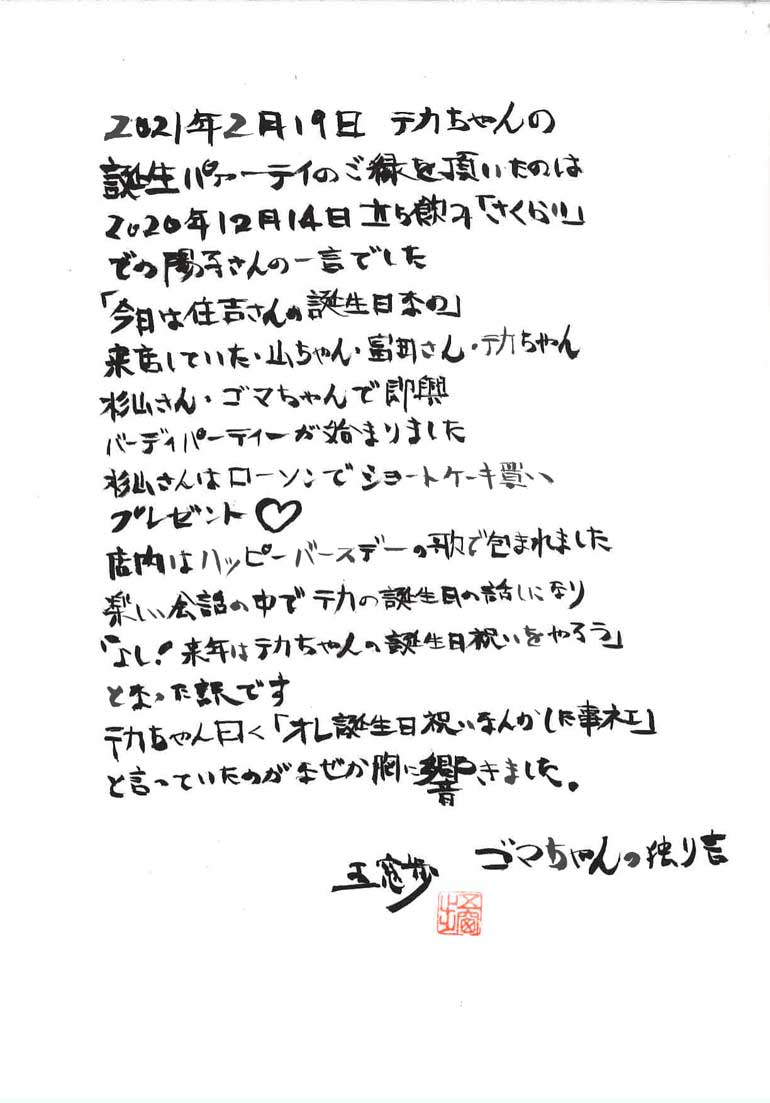 2021年2月19日 テカちゃんの
誕生パァーティのご縁を頂いたのは
2020年12月14日立ち飲み「さくら」
での陽子さんの一言でした
「今日は住吉さんの誕生日なの」
来店していた・山ちゃん・富田さん・テカちゃん
杉山さん・ゴマちゃんで即興
バーディパーティーが始まりました
杉山さんはローソンでショートケーキ買い
プレゼント♡
店内はハッピーバースデーの歌で包まれました
楽しい会話の中でテカの誕生日の話しになり
「よし!来年はテカちゃんの誕生日祝いをやろう」
となった訳です
テカちゃん曰く「オレ誕生日祝いなんかした事ネエ」
と言っていたのがなぜか胸に響きました。
ゴマちゃんの独り言